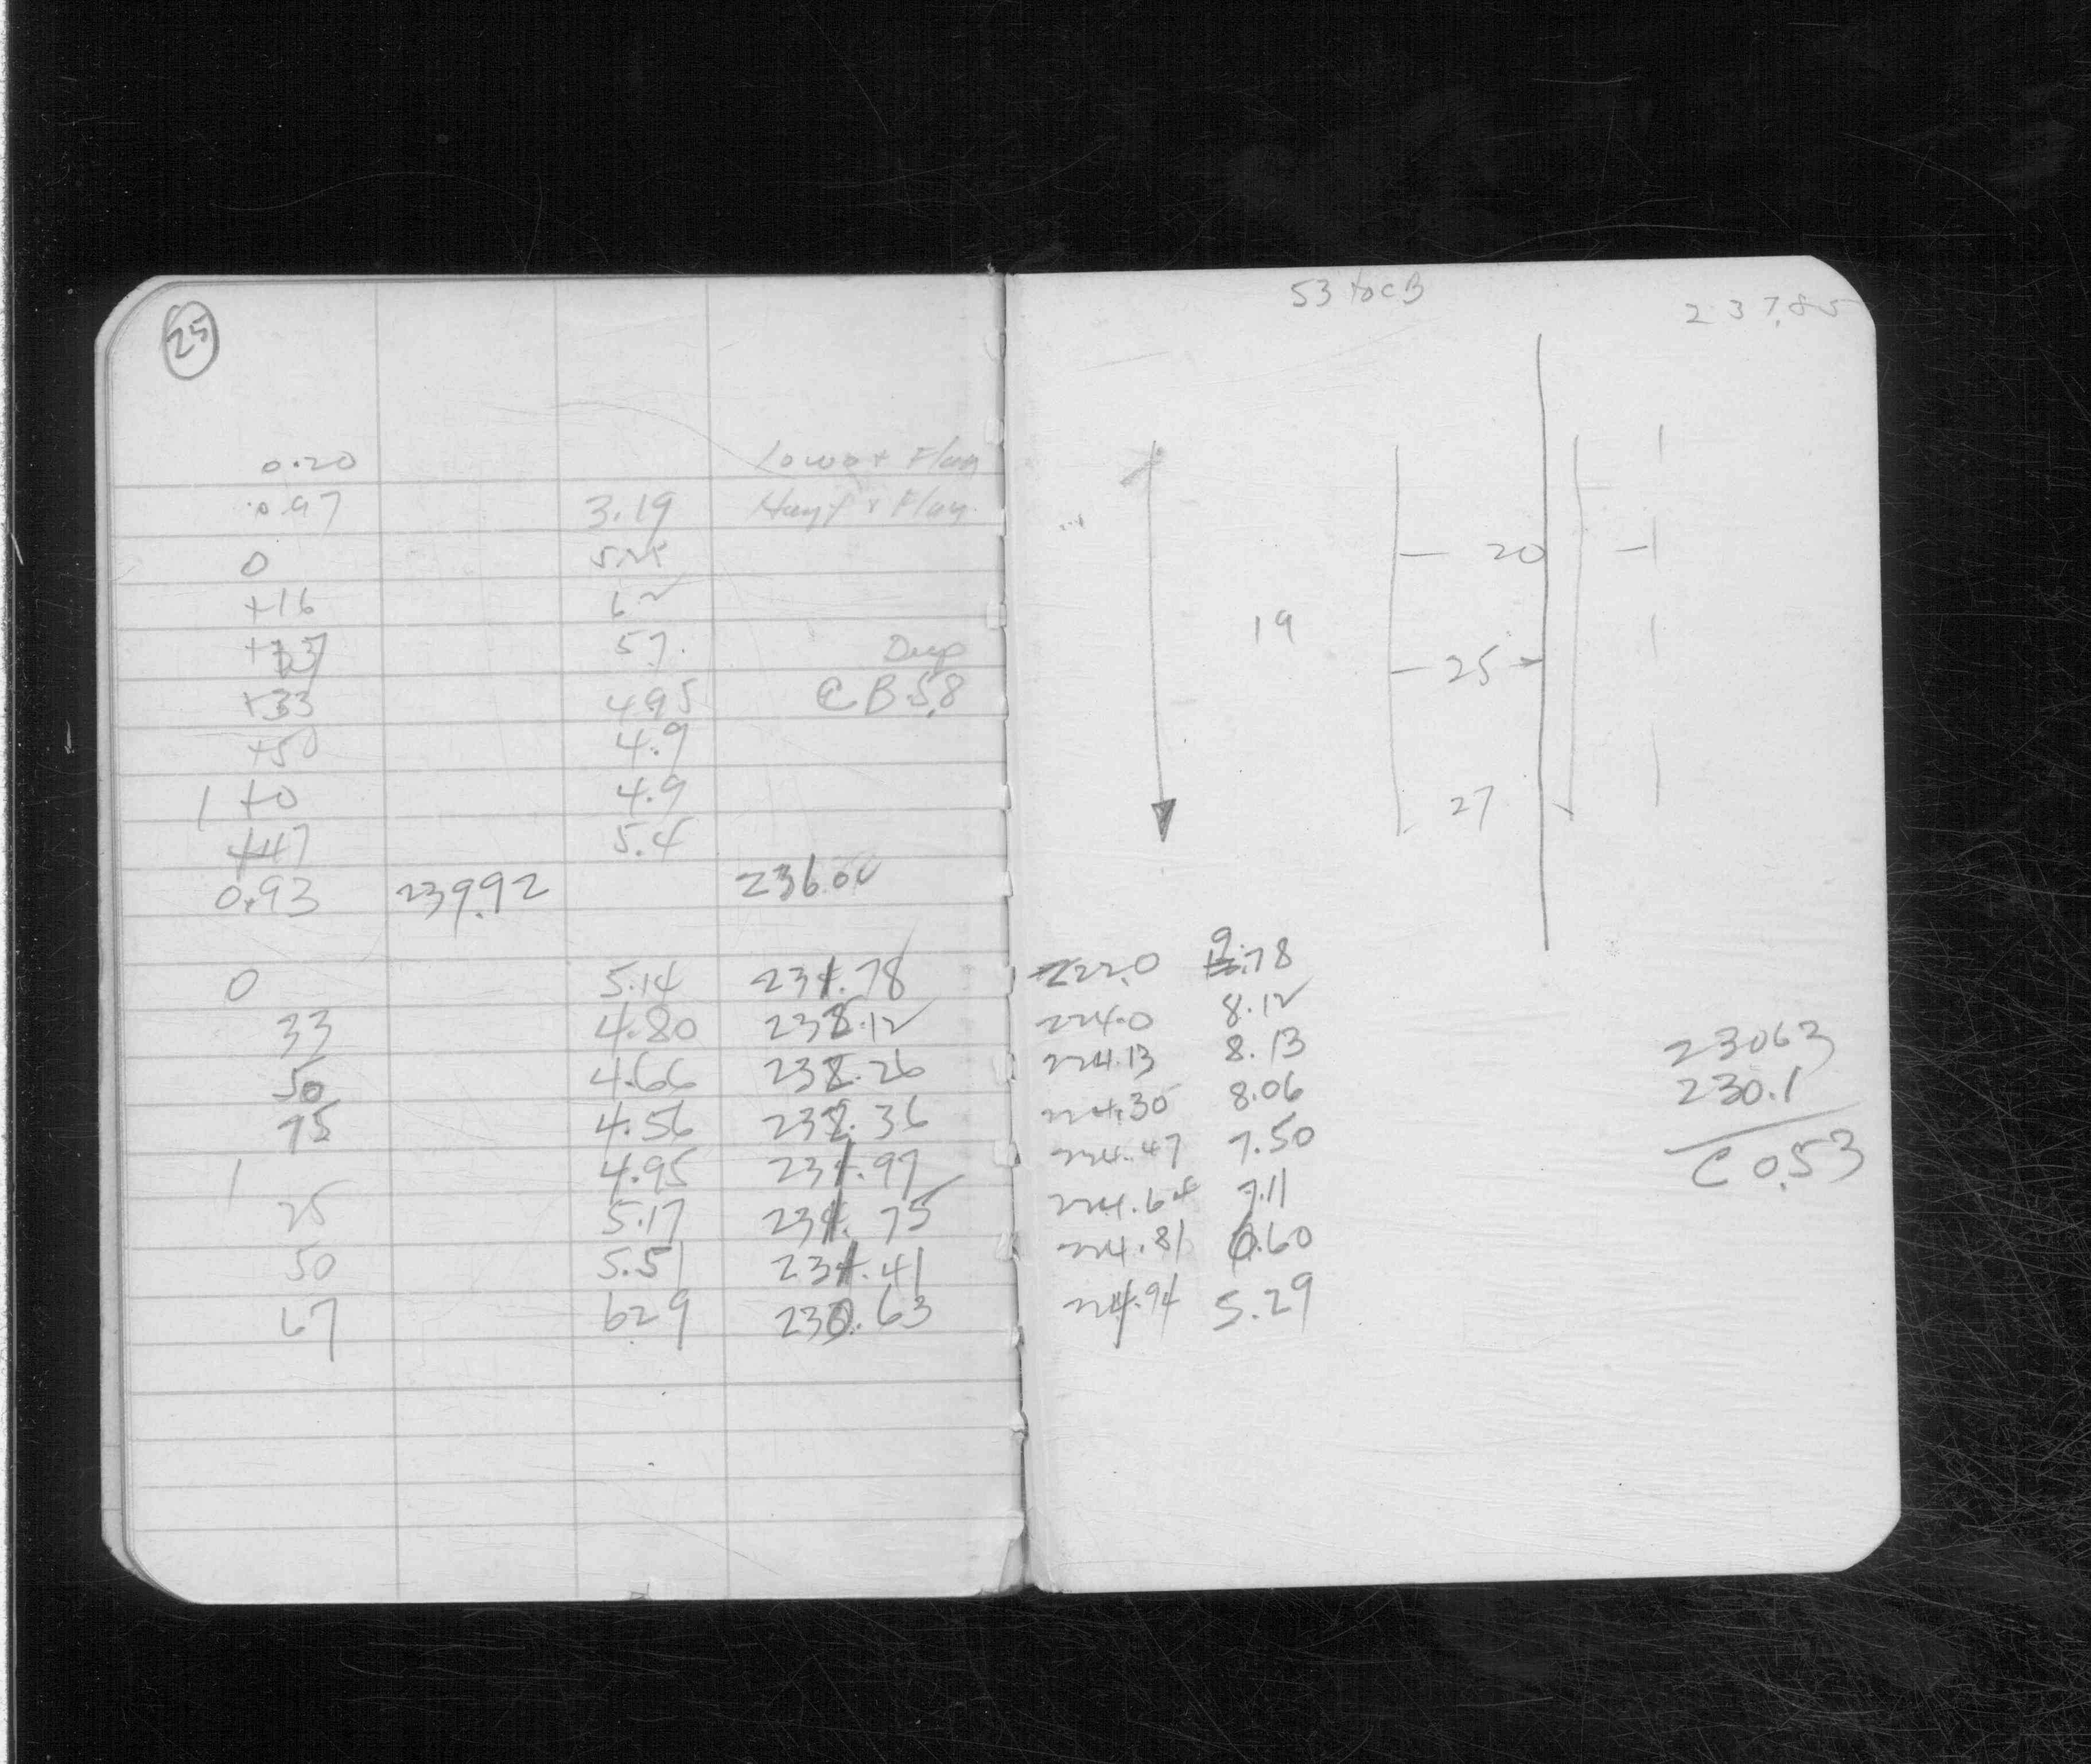 25
0.20
0.97 3.19
0
+16
57.
+33 4.95 CB 5.8
+50 4.9
1 +0 4.9
+47 5.4
0.93 239.92 236.00
0 5.14 231.78
33 4.80 232.12
50 4.66 232.26
75 4.56 232.36
1 4.95 231.97
25 5.17 231.75
50 5.51 231.41
67 6.29 230.63
53 to CB
237.85
20
19
25
27
222.0 9.78
224.0 8.12
224.13 8.13
224.30 8.06
224.47 7.50
224.64 7.11
224.81 6.60
224.94 5.29
23063
230.1
C 0.53